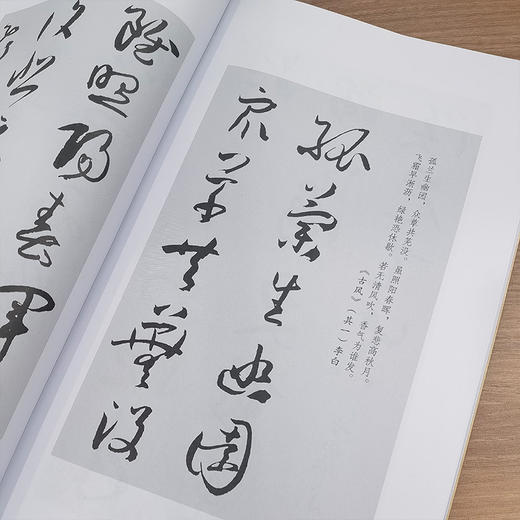 孤兰生幽园，众草共芜没。虽照阳春晖，复悲高秋月。
飞霜早淅沥，绿艳恐休歇。若无清风吹，香气为谁发。
《古风》（其一）李白
孤蘭生幽園
众草共蕪没
雖照陽春暉
復悲